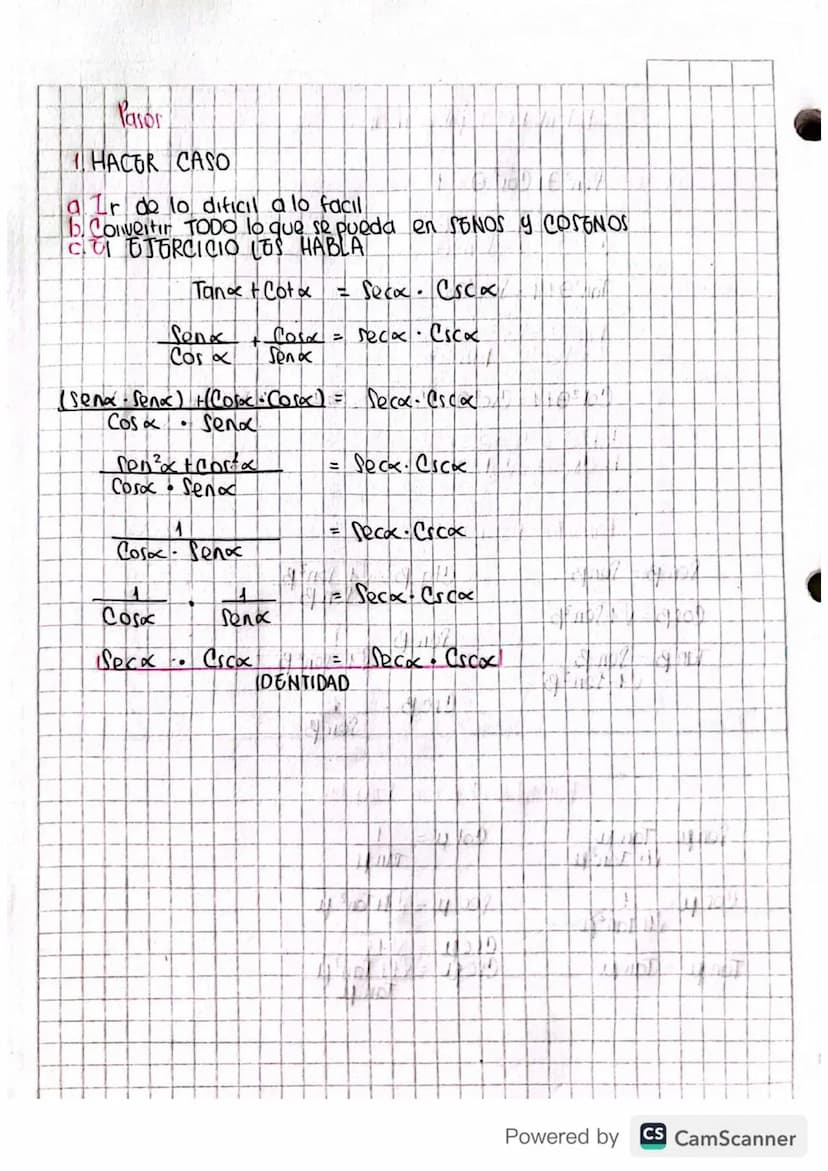 Pasos
1. HACER CASO
a. Ir de lo dificil a lo facil
b. Convertir TODO lo que se pueda en SENOS y COSENOS
c. El EJERCICIO LES HABLA
Tanα + Cotα = Secα · Cscα
Senα/Cosα + Cosα/Senα = Secα · Cscα
(Senα · Senα) + (Cosα · Cosα) / Cosα · Senα = Secα · Cscα
Sen²α + Cos²α / Cosα · Senα = Secα · Cscα
1 / Cosα · Senα = Secα · Cscα
1/Cosα · 1/Senα = Secα · Cscα
Secα · Cscα = Secα · Cscα
IDENTIDAD
Powered by CS CamScanner